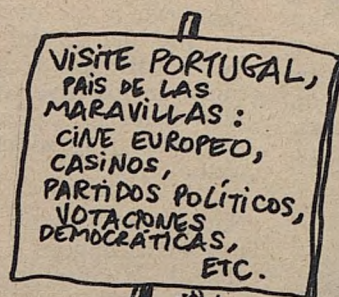 VISITE PORTUGAL,
PAIS DE LAS
MARAVILLAS:
CINE EUROPEO,
CASINOS,
PARTIDOS POLÍTICOS,
VOTACIONES
DEMOCRÁTICAS,
ETC.